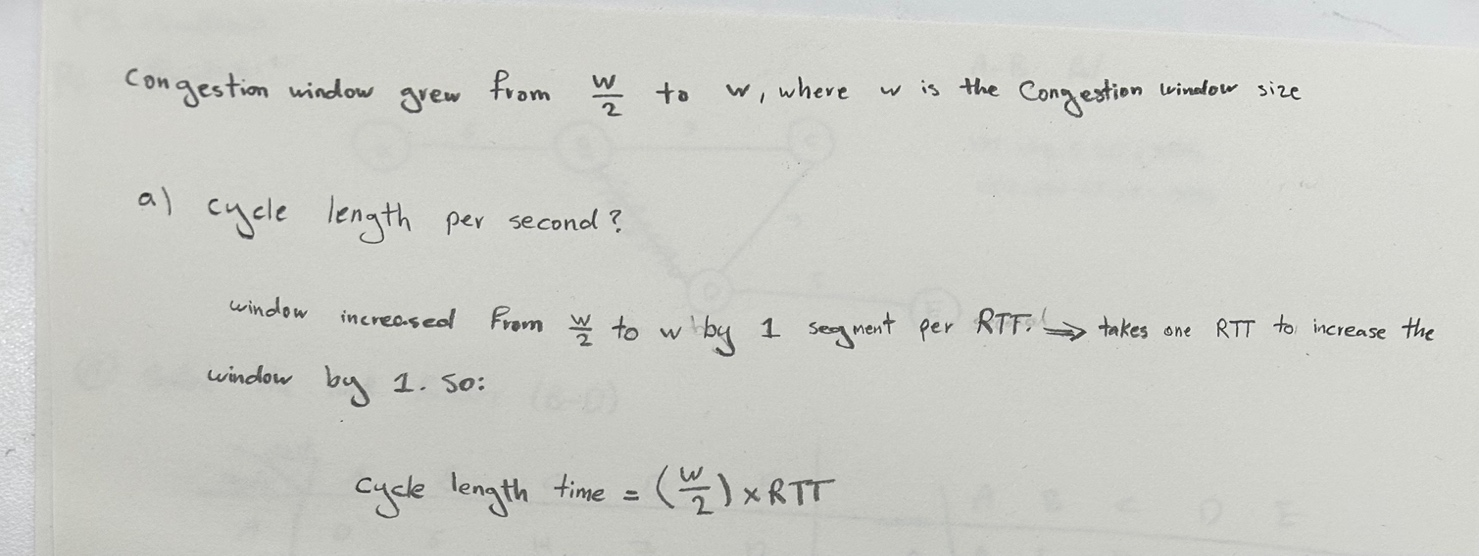 Congestion window grew from w/2 to w, where w is the Congestion window size
a) cycle length per second?
window increased from w/2 to w by 1 segment per RTT. ⇒ takes one RTT to increase the
window by 1. so:
cycle length time = (w/2) x RTT